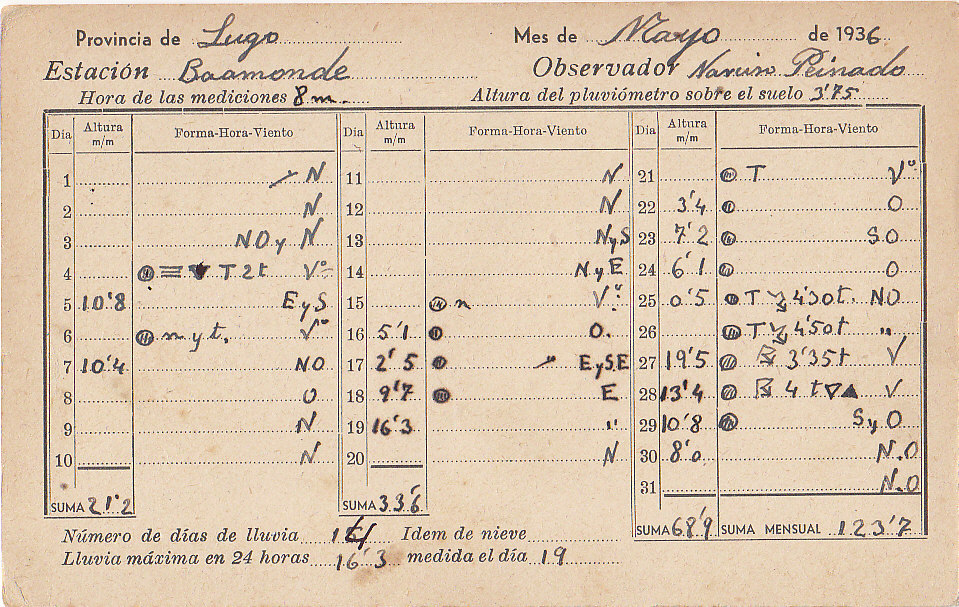 Provincia de Lugo Mes de Mayo de 1936
Estación Baamonde Observador Peinado
Hora de las mediciones 8 m. Altura del pluviómetro sobre el suelo 3'75
Día Altura m/m Forma-Hora-Viento Día Altura m/m Forma-Hora-Viento Día Altura m/m Forma-Hora-Viento
1 N 11 N 21 T Vº
2 N 12 N 22 3'4 O
3 NO y N 13 N y S 23 7'2 SO
4 T 2 t Vº 14 N y E 24 6'1 O
5 10'8 E y S 15 n Vº 25 0'5 T 4'30 t. NO
6 m y t. Vº 16 5'1 O. 26 T 4'50 t "
7 10'4 NO 17 2'5 E y SE 27 19'5 3'35 t V
8 O 18 9'7 E 28 13'4 4 t V
9 N 19 16'3 " 29 10'8 S y O
10 N 20 N 30 8'0 N.O
31 N.O
SUMA 21'2 SUMA 33'6 SUMA 68'9 SUMA MENSUAL 123'7
Número de días de lluvia Idem de nieve
Lluvia máxima en 24 horas 16'3 medida el día 19